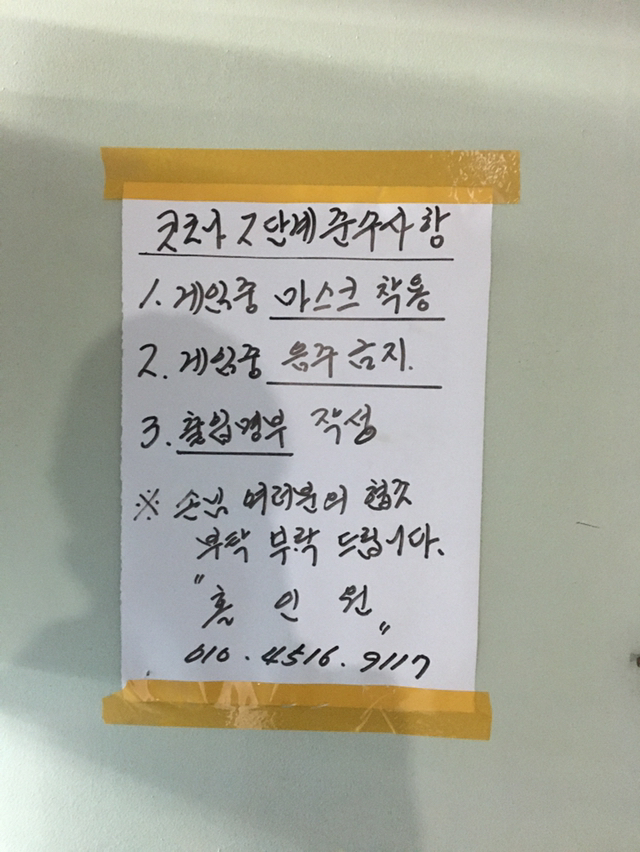 코로나 2단계 준수사항
1. 게임중 마스크 착용
2. 게임중 음주금지.
3. 출입명부 작성
※ 손님 여러분의 협조
부탁 부탁 드립니다.
"홀 인 원"
010.4516.9117